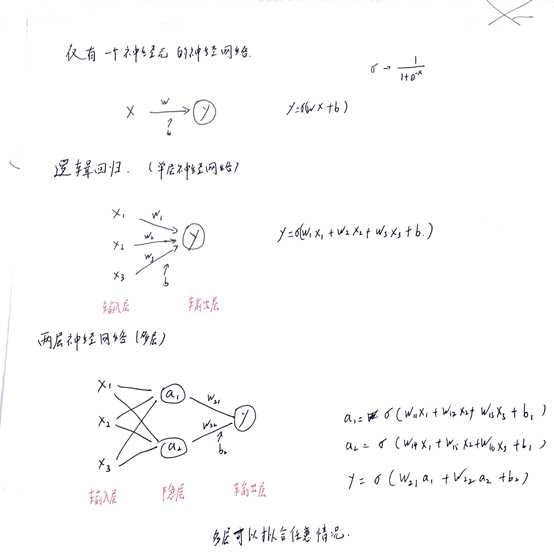 仅有一个神经元的神经网络.
σ → 1/(1+e^-x)
x w y b
y=σ(wx+b)
逻辑回归. (单层神经网络)
x₁ w₁
x₂ w₂ y
x₃ w₃ b
y=σ(w₁x₁+w₂x₂+w₃x₃+b.)
输入层 输出层
两层神经网络(多层)
x₁ a₁ w₂₁
x₂ w₂₂ y
x₃ a₂ b₂
a₁= σ(w₁₁x₁+w₁₂x₂+w₁₃x₃+b₁)
a₂= σ(w₁₄x₁+w₁₅x₂+w₁₆x₃+b₁)
y= σ(w₂₁a₁+w₂₂a₂+b₂)
输入层 隐层 输出层
多层可以拟合任意情况.